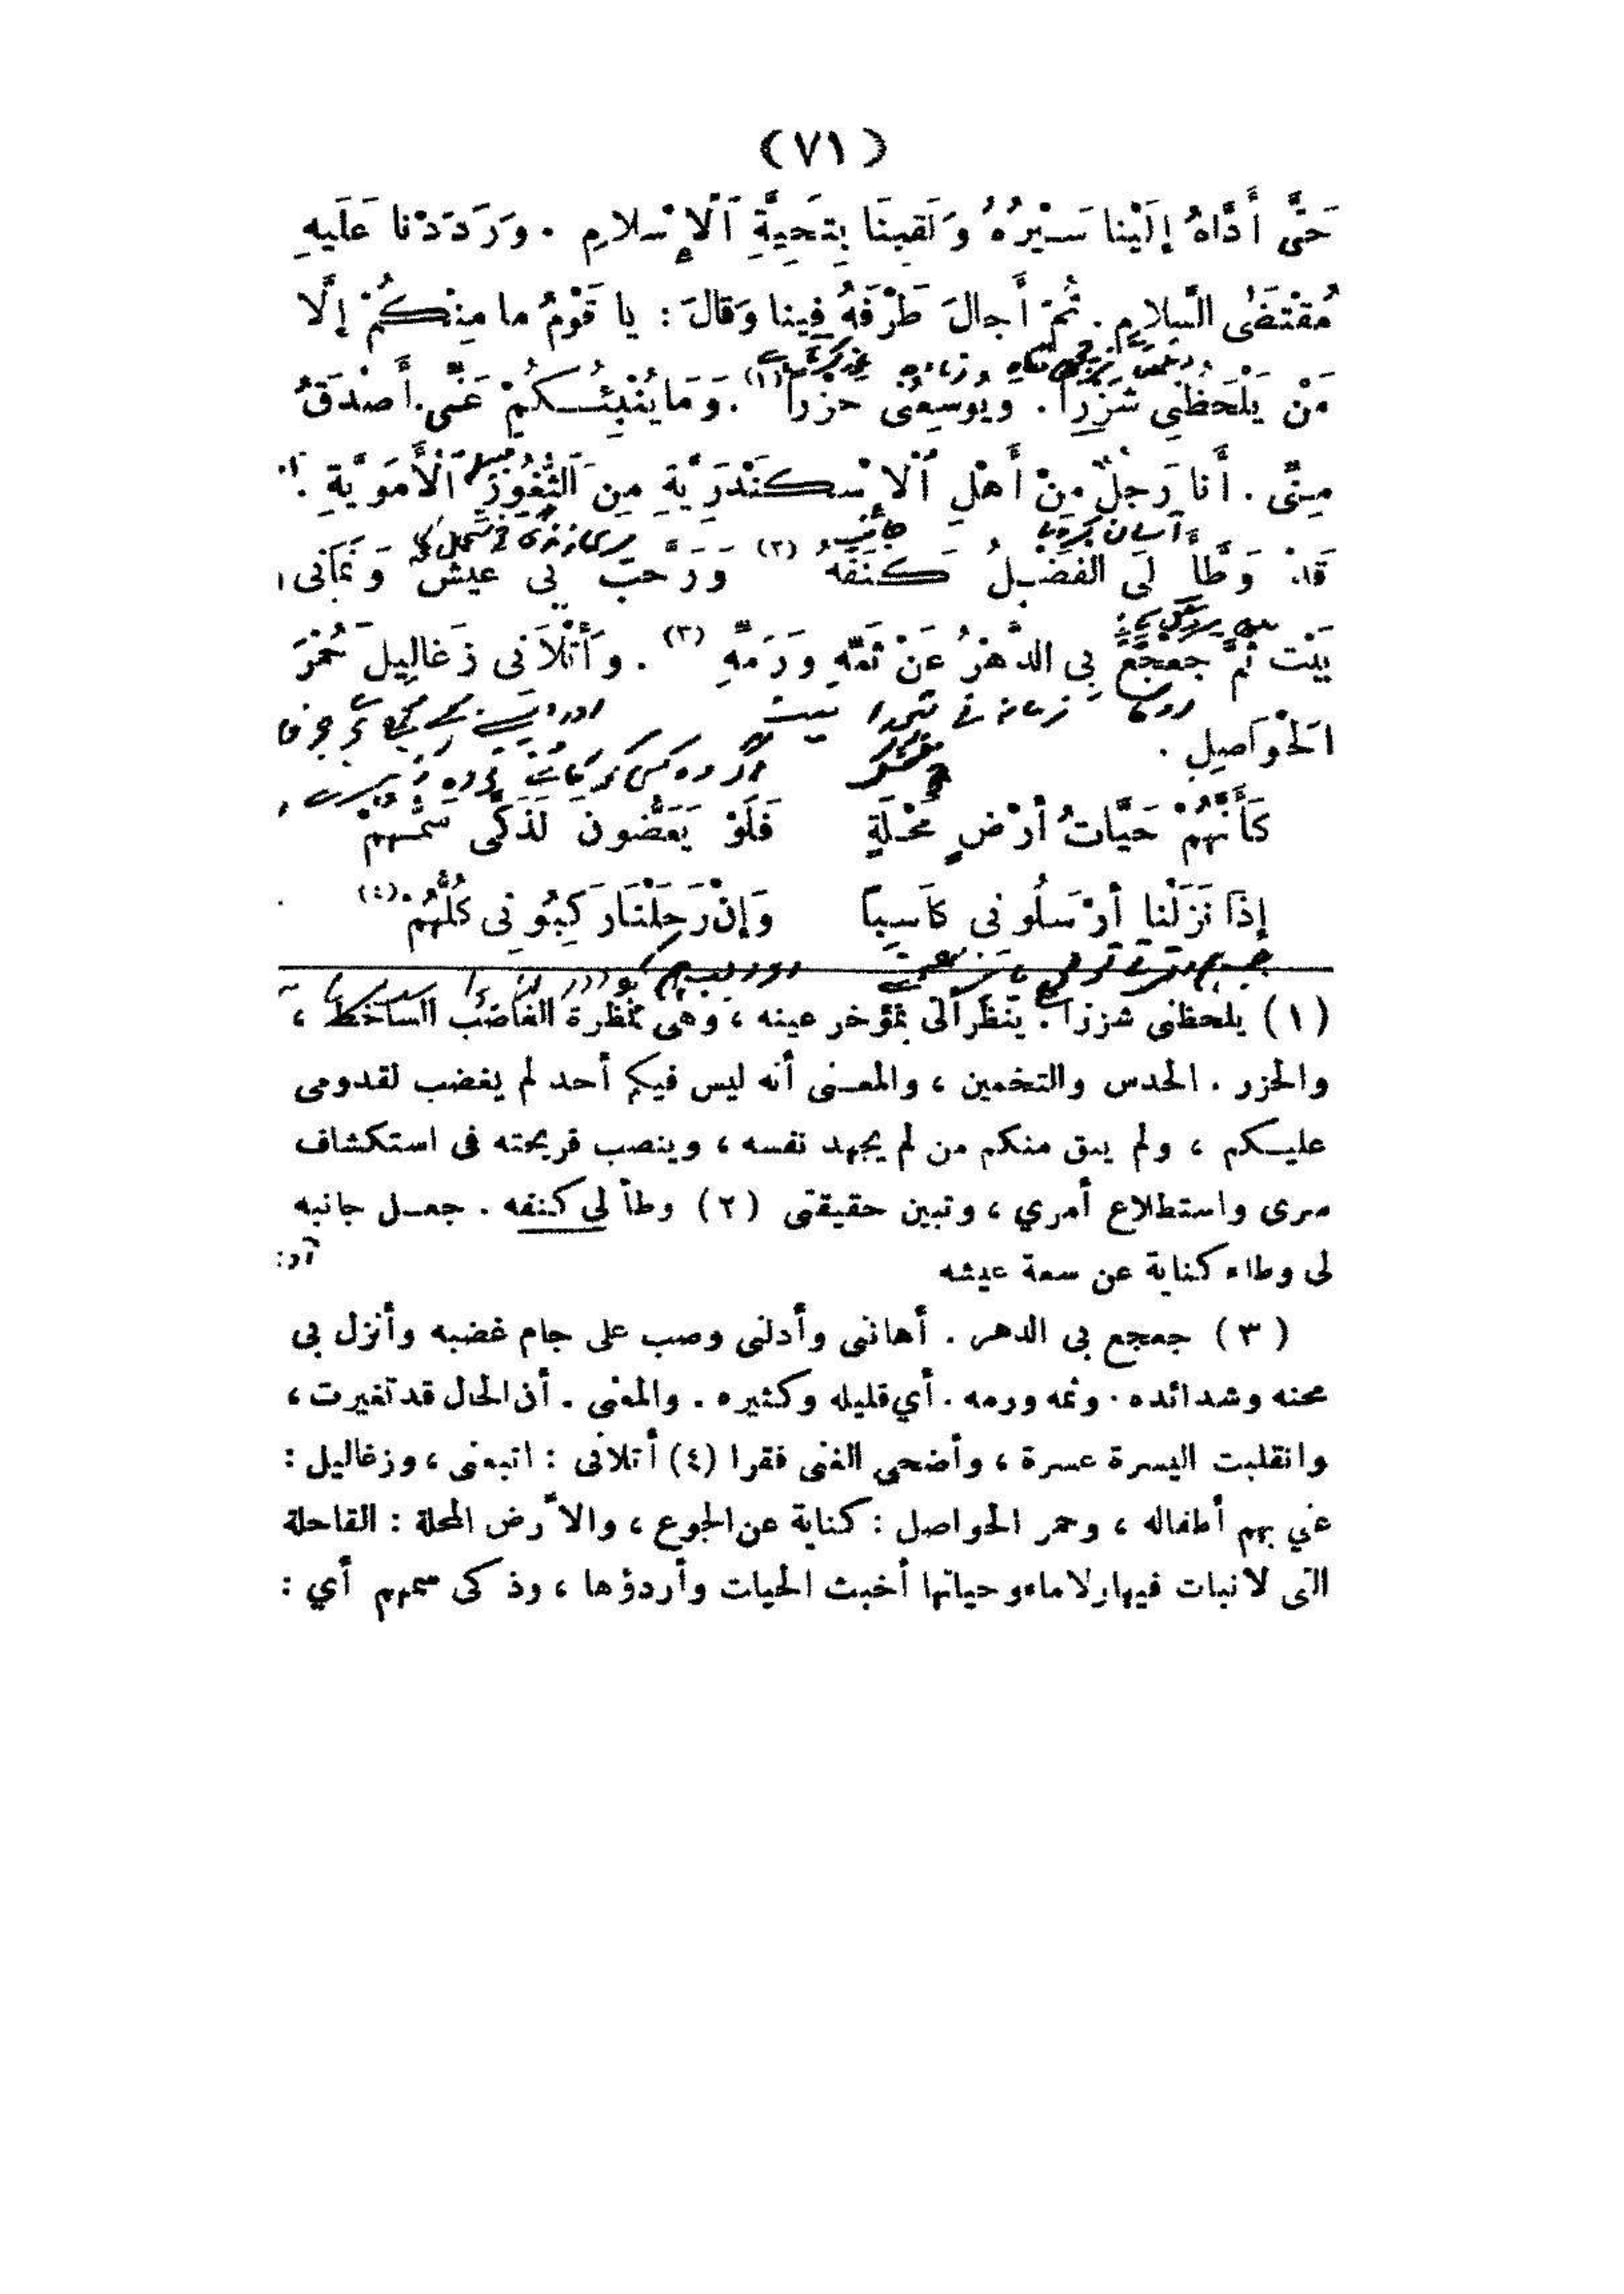 (٧١)
حَتَّى أَدَّاهُ إِلَيْنا سَيْرُهُ وَلَقِيَنَا بِتَحِيَّةِ ٱلْإِسْلامِ . وَرَدَدْنا عَلَيهِ
مُقْتَضَى السَّلامِ . ثُمَّ أَجالَ طَرْفَهُ فِينا وَقالَ : يا قَوْمُ ما مِنْكُمْ إِلَّا
مَنْ يَلْحَظُنِي شَزْراً . وَيُوسِعُنِى حَزْراً (١) . وَمَا يُنْبِئُكُمْ عَنِّى أَصْدَقُ
مِنِّى . أَنا رَجُلٌ مِنْ أَهْلِ ٱلْإِسْكَنْدَرِيَّةِ مِنَ الثُّغُورِ ٱلْأَمَوِيَّةِ .
قَدْ وَطَّأَ لِىَ الفَضْلُ كَنَفَهُ (٢) وَرَحَّبَ بِى عَيْشٌ وَنَمَانِى
بَيْتٌ ثُمَّ جَعْجَعَ بِى الدَّهْرُ عَنْ ثَمِّهِ وَرَمِّهِ (٣) . وَأَتْلَانِى زَغَالِيلَ حُمْرَ
الحَوَاصِلِ .
كَأَنَّهُمْ حَيَّاتُ أرْضٍ مَحْلَةٍ فَلَوْ يَعَضُّونَ لَذَكَّى سَمُّهُمْ
إِذَا نَزَلْنا أَرْسَلُونِى كَاسِباً وَإِنْ رَحَلْنَا رَكِبُونِى كُلُّهُمْ (٤)
(١) يلحظنى شزراً . ينظر الى بمؤخر عينه ، وهى نظرة الغاضب الساخط ،
والحزر . الحدس والتخمين ، والمعنى أنه ليس فيكم أحد لم يغضب لقدومى
عليكم ، ولم يبق منكم من لم يجهد نفسه ، وينصب قريحته فى استكشاف
سرى واستطلاع أمري ، وتبين حقيقتى (٢) وطأ لي كنفه . جعل جانبه
لى وطاء كناية عن سعة عيشه
(٣) جعجع بى الدهر . أهاننى وأدلنى وصب على جام غضبه وأنزل بى
محنه وشدائده . وثمه ورمه . أي قليله وكثيره . والمعنى . أن الحال قد تغيرت ،
وانقلبت اليسرة عسرة ، وأضحى الغنى فقرا (٤) أتلانى : اتبعنى ، وزغاليل :
عني بهم أطفاله ، وحمر الحواصل : كناية عن الجوع ، والأرض المحلة : القاحلة
التى لا نبات فيها ولا ماء وحياتها أخبث الحيات وأردؤها ، وذكى سمهم أي :